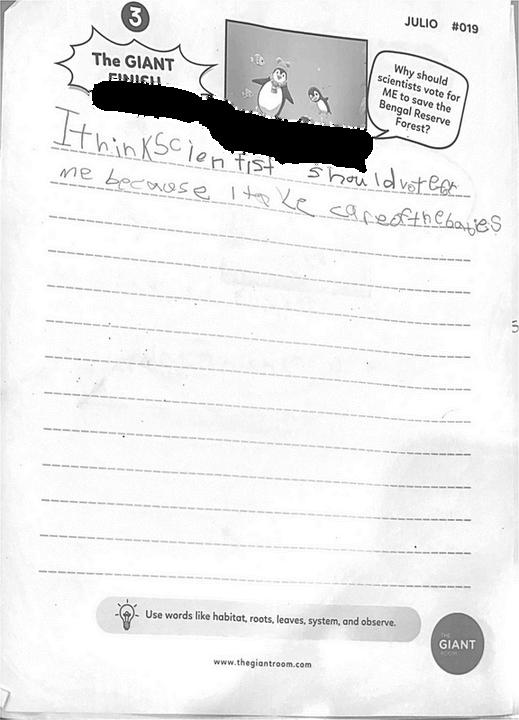 3
JULIO #019
The GIANT
FINISH
Why should
scientists vote for
ME to save the
Bengal Reserve
Forest?
I think Scientist should vote for
me because I take care of the babies
5
Use words like habitat, roots, leaves, system, and observe.
THE
GIANT
ROOM
www.thegiantroom.com